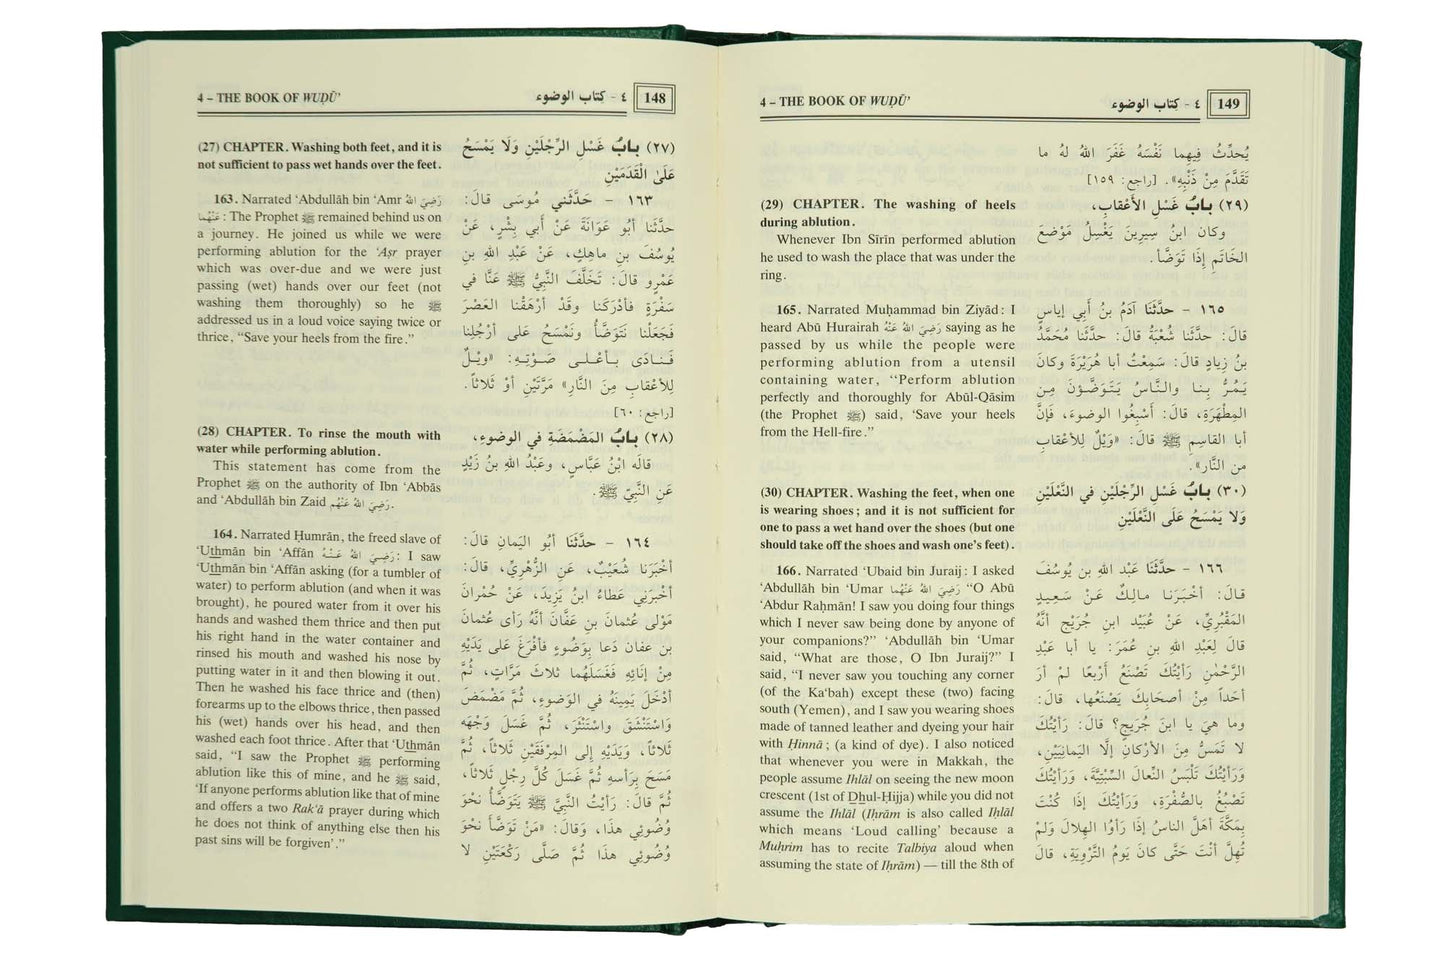 4 – THE BOOK OF WUḌŪ’
٤ - كتاب الوضوء
148
(27) CHAPTER. Washing both feet, and it is
not sufficient to pass wet hands over the feet.
163. Narrated ‘Abdullāh bin ‘Amr رَضِيَ اللهُ
عَنْهُما: The Prophet ﷺ remained behind us on
a journey. He joined us while we were
performing ablution for the ‘Aṣr prayer
which was over-due and we were just
passing (wet) hands over our feet (not
washing them thoroughly) so he ﷺ
addressed us in a loud voice saying twice or
thrice, “Save your heels from the fire.”
(28) CHAPTER. To rinse the mouth with
water while performing ablution.
This statement has come from the
Prophet ﷺ on the authority of Ibn ‘Abbās
and ‘Abdullāh bin Zaid رَضِيَ اللهُ عَنْهُم.
164. Narrated Ḥumrān, the freed slave of
‘Uthmān bin ‘Affān رَضِيَ اللهُ عَنْهُ: I saw
‘Uthmān bin ‘Affān asking (for a tumbler of
water) to perform ablution (and when it was
brought), he poured water from it over his
hands and washed them thrice and then put
his right hand in the water container and
rinsed his mouth and washed his nose by
putting water in it and then blowing it out.
Then he washed his face thrice and (then)
forearms up to the elbows thrice, then passed
his (wet) hands over his head, and then
washed each foot thrice. After that ‘Uthmān
said, “I saw the Prophet ﷺ performing
ablution like this of mine, and he ﷺ said,
‘If anyone performs ablution like that of mine
and offers a two Rak‘ā prayer during which
he does not think of anything else then his
past sins will be forgiven’.”
(٢٧) بابُ غَسْلِ الرِّجْلَيْنِ وَلَا يَمْسَحُ
عَلَى الْقَدَمَيْنِ
١٦٣ - حَدَّثَني مُوسَى قالَ:
حَدَّثَنا أبُو عَوَانَةَ عَنْ أبي بِشْرٍ، عَنْ
يُوسُفَ بنِ ماهِكٍ، عَنْ عَبْدِ اللهِ بنِ
عَمْرٍو قالَ: تَخَلَّفَ النَّبيُّ ﷺ عَنَّا في
سَفْرَةٍ فأدْرَكَنا وقَدْ أرْهَقْنا العَصْرَ
فَجَعَلْنا نَتَوَضَّأُ ونَمْسَحُ على أرْجُلِنا
فَنادَى بأعْلى صَوْتِهِ: «وَيْلٌ
لِلأعْقابِ مِنَ النَّارِ» مَرَّتَيْنِ أوْ ثَلاثاً.
[راجع: ٦٠]
(٢٨) بابُ المَضْمَضَةِ في الوُضوءِ،
قالَه ابْنُ عَبَّاسٍ، وعَبْدُ اللهِ بنُ زَيْدٍ
عَنِ النَّبيِّ ﷺ.
١٦٤ - حَدَّثَنا أبُو اليَمانِ قالَ:
أخْبَرَنا شُعَيْبٌ، عَنِ الزُّهْرِيِّ، قالَ:
أخْبَرَني عَطاءُ ابنُ يَزِيدَ، عَنْ حُمْرانَ
مَوْلى عُثْمانَ بنِ عَفَّانَ أنَّهُ رَأى عُثمانَ
بن عفان دَعا بِوَضُوءٍ فأفْرَغَ على يَدَيْهِ
مِنْ إنَائِهِ فَغَسَلَهُما ثلاثَ مَرَّاتٍ، ثُمَّ
أدْخَلَ يَمِينَهُ في الوَضُوءِ، ثُمَّ مَضْمَضَ
وَاسْتَنْشَقَ وَاسْتَنْثَرَ، ثُمَّ غَسَلَ وَجْهَه
ثَلاثاً، وَيَدَيْهِ إلى المِرْفَقَيْنِ ثَلاثاً، ثُمَّ
مَسَحَ بِرَأسِهِ ثُمَّ غَسَلَ كُلَّ رِجْلٍ ثَلاثاً،
ثُمَّ قالَ: رَأيْتُ النَّبيَّ ﷺ يَتَوَضَّأُ نَحْوَ
وُضُوئي هذَا، وَقالَ: «مَنْ تَوَضَّأَ نَحْوَ
وُضُوئي هذَا ثُمَّ صَلَّى رَكْعَتَيْنِ لا
4 – THE BOOK OF WUḌŪ’
٤ - كتاب الوضوء
149
(29) CHAPTER. The washing of heels
during ablution.
Whenever Ibn Sīrīn performed ablution
he used to wash the place that was under the
ring.
165. Narrated Muḥammad bin Ziyād: I
heard Abū Hurairah رَضِيَ اللهُ عَنْهُ saying as he
passed by us while the people were
performing ablution from a utensil
containing water, “Perform ablution
perfectly and thoroughly for Abūl-Qāsim
(the Prophet ﷺ) said, ‘Save your heels
from the Hell-fire.”
(30) CHAPTER. Washing the feet, when one
is wearing shoes; and it is not sufficient for
one to pass a wet hand over the shoes (but one
should take off the shoes and wash one’s feet).
166. Narrated ‘Ubaid bin Juraij: I asked
‘Abdullāh bin ‘Umar رَضِيَ اللهُ عَنْهُما “O Abū
‘Abdur Raḥmān! I saw you doing four things
which I never saw being done by anyone of
your companions?” ‘Abdullāh bin ‘Umar
said, “What are those, O Ibn Juraij?” I
said, “I never saw you touching any corner
(of the Ka‘bah) except these (two) facing
south (Yemen), and I saw you wearing shoes
made of tanned leather and dyeing your hair
with Ḥinnā; (a kind of dye). I also noticed
that whenever you were in Makkah, the
people assume Ihlāl on seeing the new moon
crescent (1st of Dhul-Ḥijja) while you did not
assume the Ihlāl (Iḥrām is also called Iḥlāl
which means ‘Loud calling’ because a
Muḥrim has to recite Talbiya aloud when
assuming the state of Iḥrām) — till the 8th of
يُحَدِّثُ فِيهِما نَفْسَهُ غَفَرَ اللهُ لهُ ما
تَقَدَّمَ مِنْ ذَنْبِهِ». [راجع: ١٥٩]
(٢٩) بابُ غَسْلِ الأعْقابِ،
وكان ابنُ سِيرِينَ يَغْسِلُ مَوْضعَ
الخَاتَمِ إذَا تَوَضَّأَ.
١٦٥ - حَدَّثَنا آدَمُ بنُ أبي إياسٍ
قالَ: حدَّثَنا شُعْبَةُ قالَ: حدَّثَنا مُحَمَّدُ
بنُ زِيادٍ قالَ: سَمِعْتُ أبا هُرَيْرَةَ وكانَ
يَمُرُّ بِنا والنَّاسُ يَتَوَضَّؤونَ مِنَ
المِطْهَرَةِ، قالَ: أسْبِغُوا الوضوءَ، فإنَّ
أبا القاسِمِ ﷺ قالَ: «وَيْلٌ لِلأعْقابِ
من النَّارِ».
(٣٠) بابُ غَسْلِ الرِّجْلَيْنِ في النَّعْلَيْنِ
وَلا يَمْسَحُ عَلَى النَّعْلَيْنِ
١٦٦ - حَدَّثَنا عَبْدُ اللهِ بن يُوسُفَ
قالَ: أخْبَرَنا مالِكٌ عَنْ سَعِيدٍ
المَقْبُرِيِّ، عَنْ عُبَيْدِ ابنِ جُرَيْجٍ أنَّهُ
قالَ لِعَبْدِ اللهِ بنِ عُمَرَ: يا أبا عَبْدِ
الرَّحْمٰنِ رَأيْتُكَ تَصْنَعُ أرْبَعًا لمْ أرَ
أحَداً مِنْ أصْحَابِكَ يَصْنَعُها، قالَ:
وما هِيَ يا ابنَ جُرَيجٍ؟ قالَ: رَأيْتُكَ
لا تَمَسُّ مِنَ الأرْكانِ إلَّا اليَمانِيَيْنِ،
وَرَأيْتُكَ تَلْبَسُ النِّعالَ السِّبْتِيَّةَ، وَرَأيْتُكَ
تَصْبُغُ بالصُّفْرَةِ، وَرَأيْتُكَ إذَا كُنْتَ
بِمَكَّةَ أهَلَّ الناسُ إذَا رَأوُا الهِلالَ وَلمْ
تُهِلَّ أنْتَ حَتَّى كانَ يَومُ التَّرْوِيَةِ، قالَ